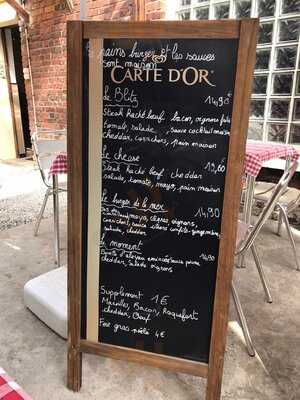 Les pains burger et les sauces
sont maison
CARTE D'OR
Le Blitz 14,90€
Steak Haché bœuf, bacon, oignons frits
tomate, salade, sauce cocktail maison
cheddar, cornichons, pain maison
Le cheese 13,60
Steak Haché bœuf cheddar
salade, tomate, mayo, pain maison
Le burger de la mer 14,90
oignons,
salade, cheddar
Le moment
cheddar, salade oignons
Supplement 1€
Maroilles, Bacon, Roquefort
cheddar, Oeuf
Foie gras poêlé 4€